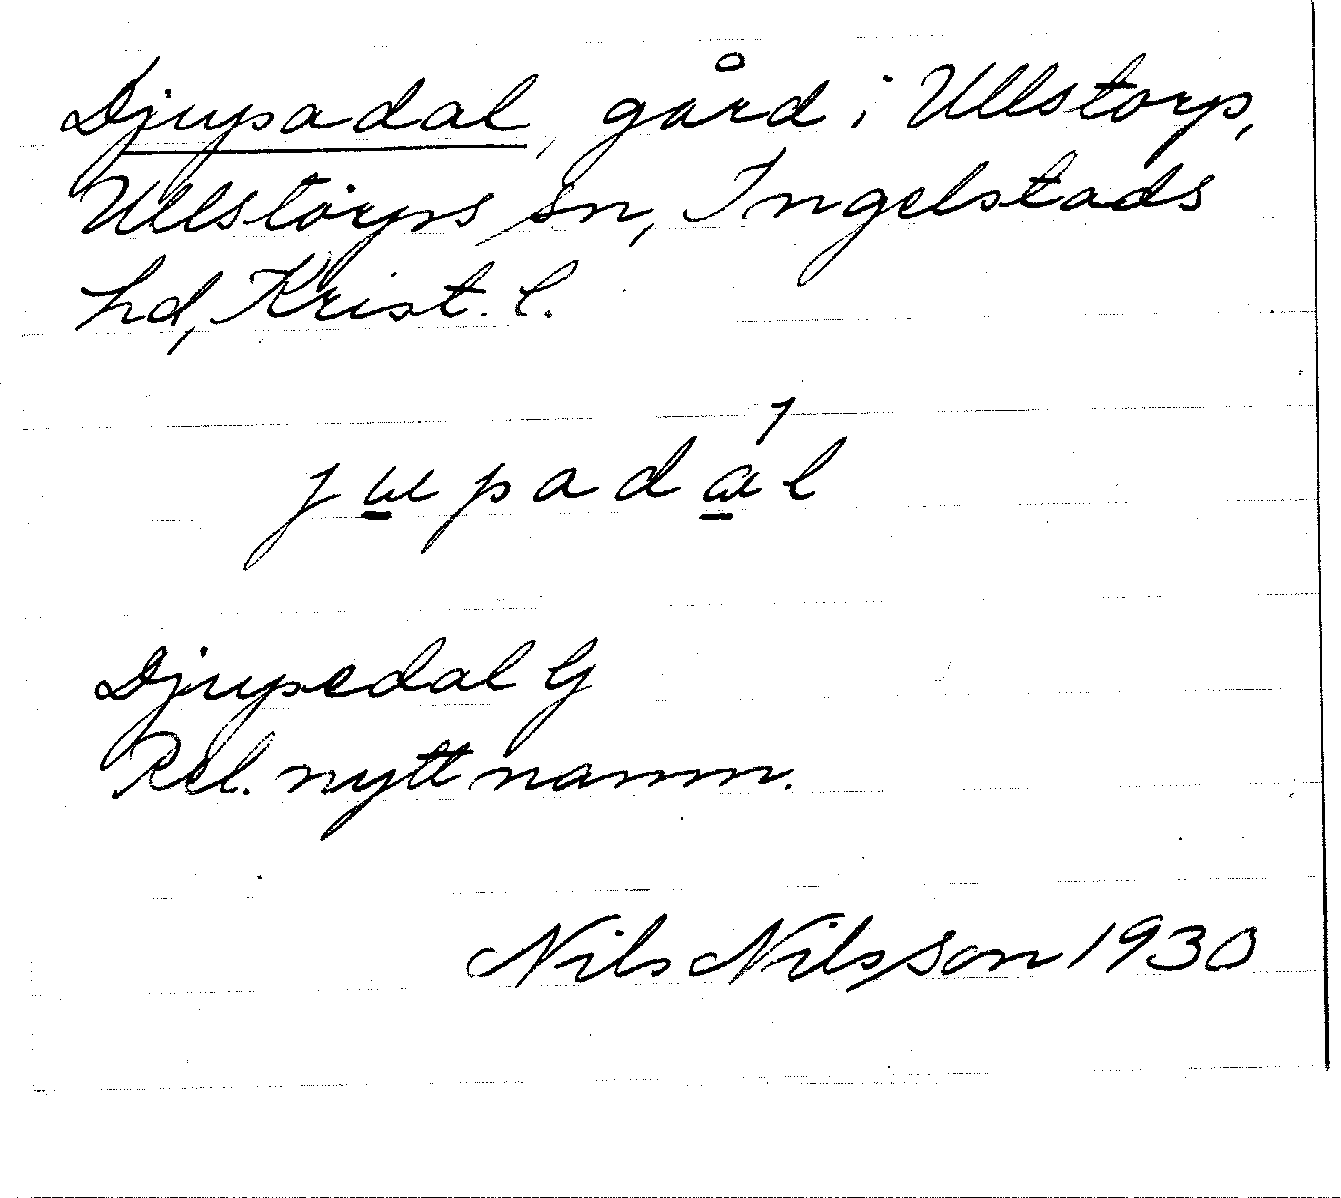 Djupadal, gård i Ullstorp,
Ullstorps sn, Ingelstads
hd, Krist. l.
jupadál
Djupedal G
Rel. nytt namn.
Nils Nilsson 1930